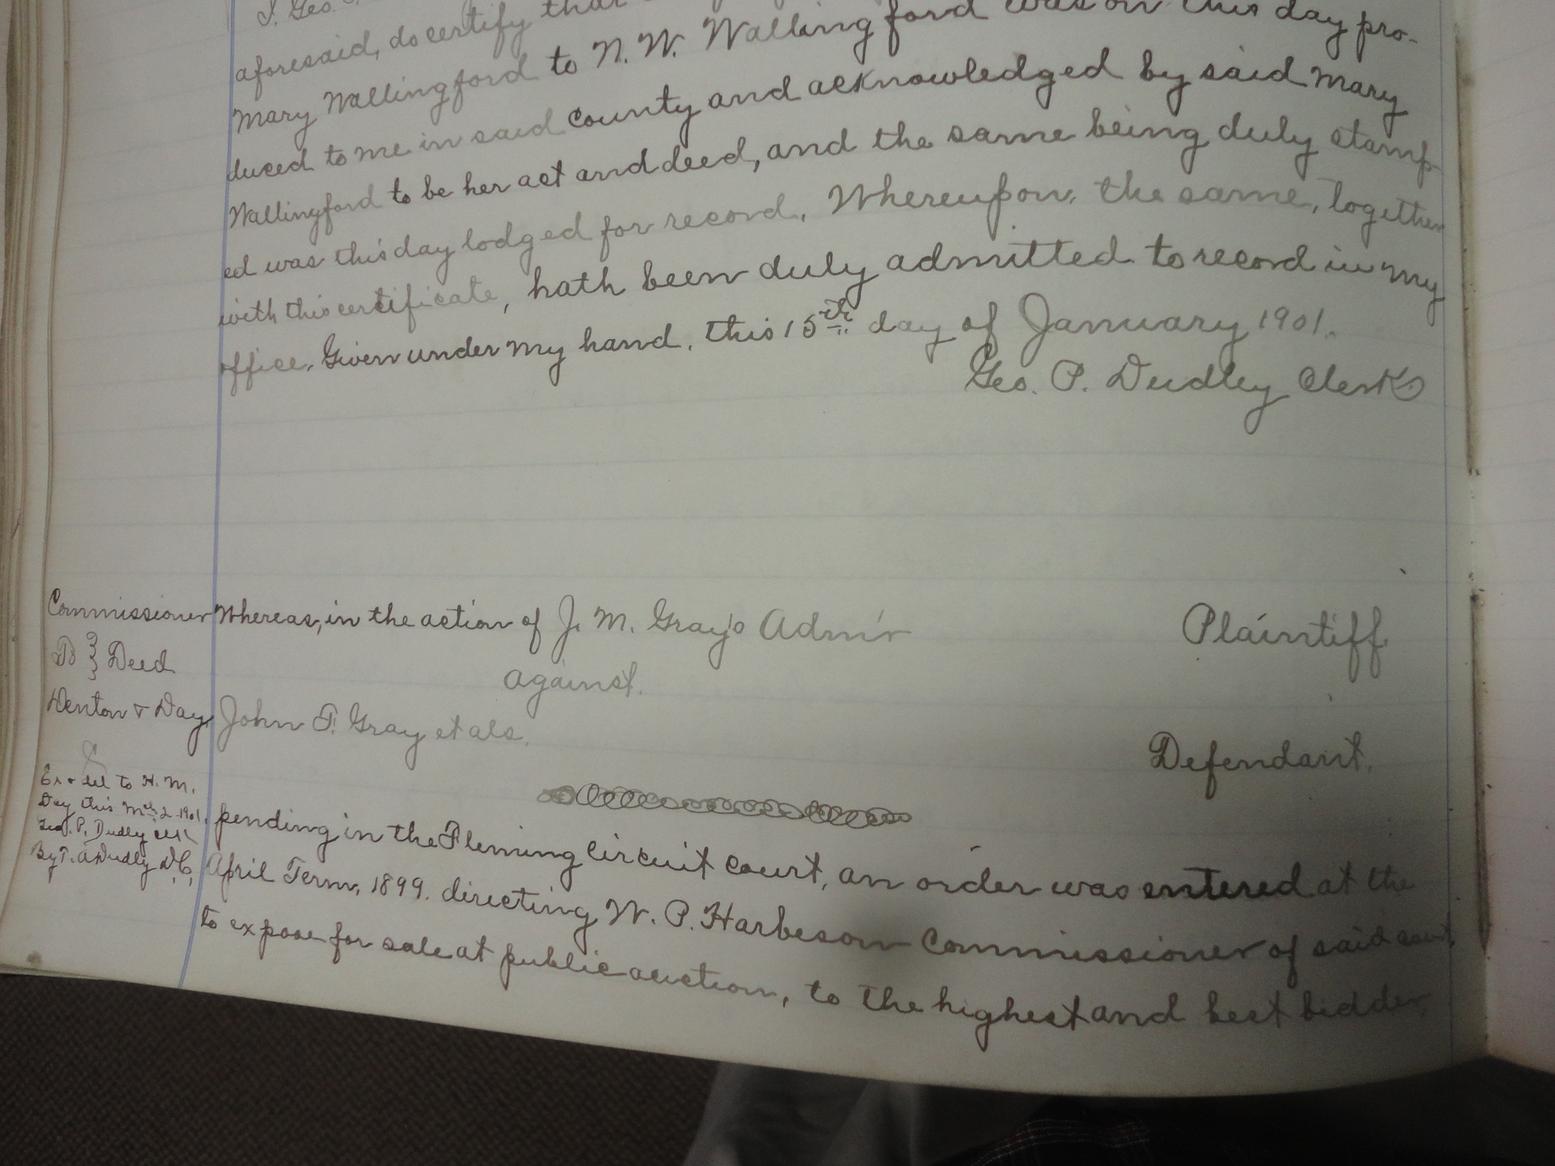 I. Geo.
aforesaid, do certify that
Mary Wallingford to N. W. Wallingford was on this day pro-
duced to me in said county and acknowledged by said Mary
Wallingford to be her act and deed, and the same being duly stamp-
ed was this day lodged for record. Whereupon, the same, together
with this certificate, hath been duly admitted to record in my
office. Given under my hand, this 15th day of January 1901.
Geo. P. Dudley Clerk
Commissioner
To } Deed
Denton & Day.
Ex & del to H. M.
Day this Mch 2 1901.
Geo. P. Dudley clk
By T. A Dudley D.C.
Whereas, in the action of J. M. Gray's Adm'r Plaintiff
against.
John T. Gray et als. Defendant.
pending in the Fleming circuit court, an order was entered at the
April Term, 1899. directing W. P. Harbeson Commissioner of said court
to expose for sale at public auction, to the highest and best bidder,